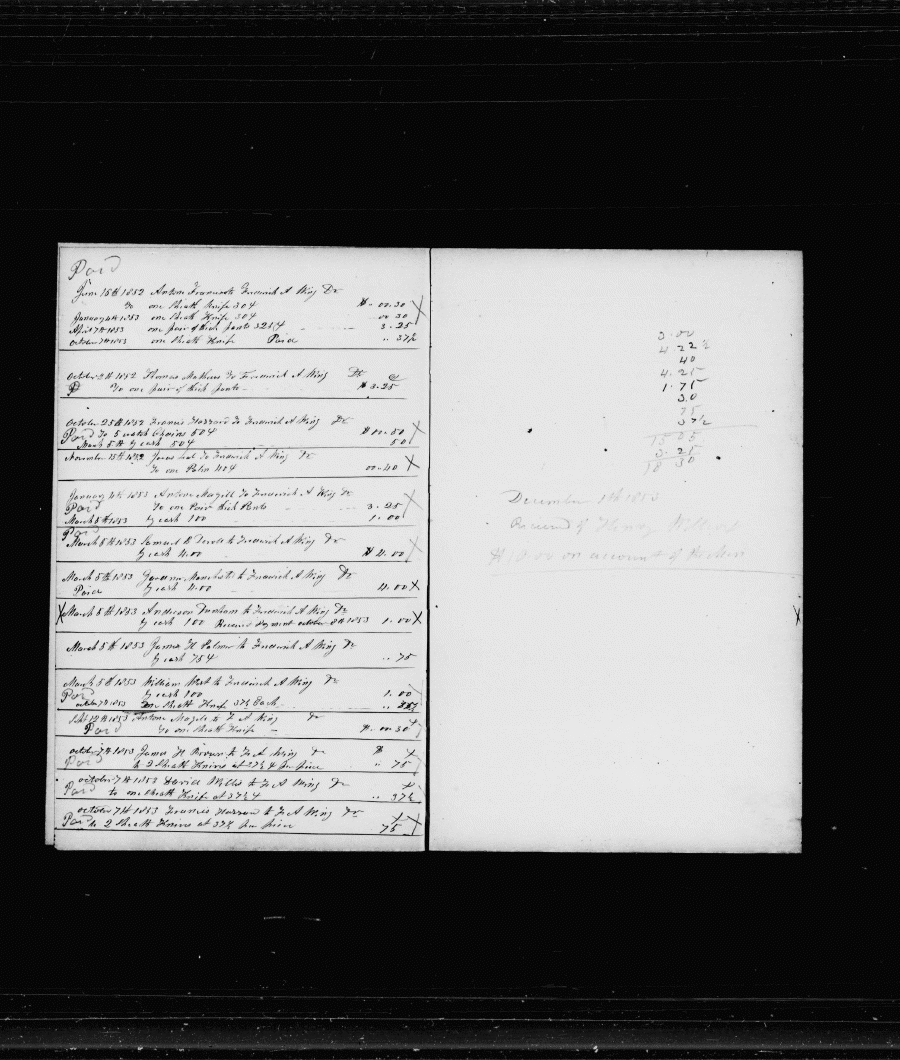 Paid
June 15th 1852 Antone Francis to Fredrick A King Dr
To one Sheath Knife 30 ¢ $ " 00.30
January 4th 1853 one Sheath Knife 30 ¢ 00 30
April 7th 1853 one pair of thick pants 325 ¢ 3.25
october 7th 1853 one Sheath Knife Paid " 37½
October 2th 1852 Thomas Mathews To Fredrick A King Dr
P To one pair of thick pants $ 3.25
October 25th 1852 Francis Harrow To Fredrick A King Dr
Paid To 5 watch Chains 50 ¢ $ 00.50
March 5th by cash 50 ¢ 50
November 15th 1852 to Fredrick A King Dr
To one Palm 40 ¢ 00.40
January 4th 1853 Antone Magill to Fredrick A King Dr
Paid To one Pair thick Pants 3.25
March 5th 1853 by cash 100 1.00
Paid
March 5th 1853 Samuel to Fredrick A King Dr
by cash 4.00 $ 4.00
March 5th 1853 Manchester to Fredrick A King Dr
Paid by cash 4.00 4.00
X March 5th 1853 Anderson Dunham to Fredrick A King Dr
by cash 100 Received Payment october 8th 1853 1.00 X
March 5th 1853 James H Palmer to Fredrick A King Dr
by cash 75 ¢ " 75
March 5th 1853 William West to Fredrick A King Dr
Paid by cash 100 1.00
october 7th 1853 one Sheath Knife 37½ Each " 37½
1853 Antone Magill to F A King Dr
Paid To one Sheath Knife $ 00 30
october 7th 1853 James H Brown to F A King Dr $
Paid to 2 Sheath Knives at 37½ ¢ per piece " 75
october 7th 1853 David Willis to F A King Dr
Paid to one Sheath Knife at 37½ ¢ " 37½
october 7th 1853 Francis Harrow to F A King Dr
Paid to 2 Sheath Knives at 37½ per piece 75
3.00
4 22½
40
4.25
1.75
30
75
37½
15 05
3.25
18 30
December 1th 1853
Received of Henry
$ 10.00 on account of